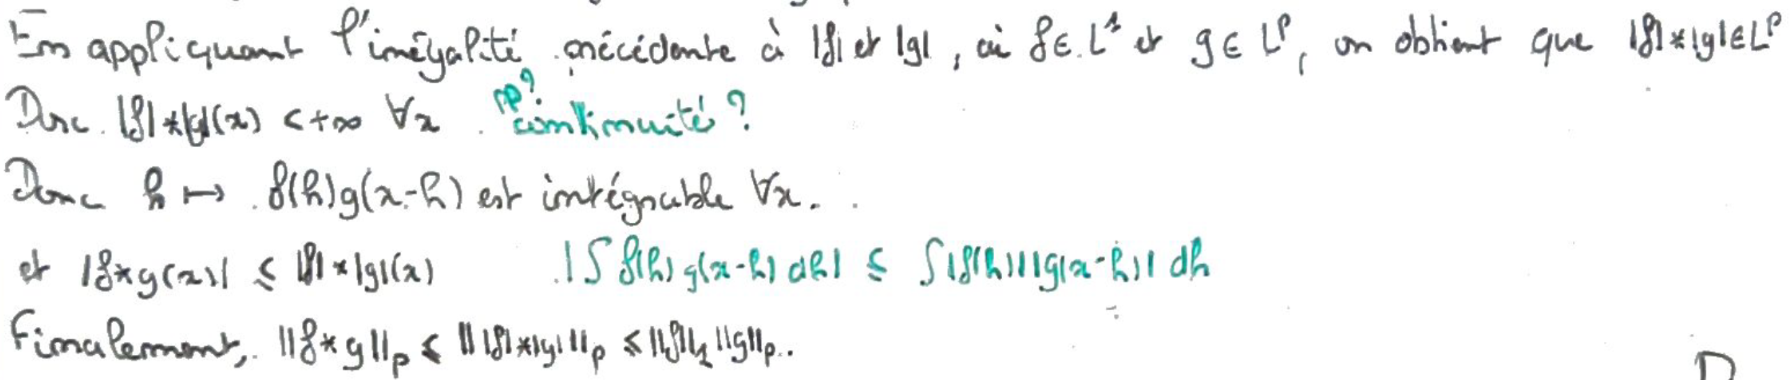 En appliquant l'inégalité précédente à |f| et |g|, où f ∈ L¹ et g ∈ Lᵖ, on obtient que |f|*|g| ∈ Lᵖ
Donc |f|*|g|(x) < +∞ ∀x. pp? continuité ?
Donc h ↦ f(h)g(x-h) est intégrable ∀x.
et |f*g(x)| ≤ |f|*|g|(x) |∫ f(h) g(x-h) dh| ≤ ∫|f(h)||g(x-h)| dh
Finalement, ||f*g||ₚ ≤ || |f|*|g| ||ₚ ≤ ||f||₁ ||g||ₚ.